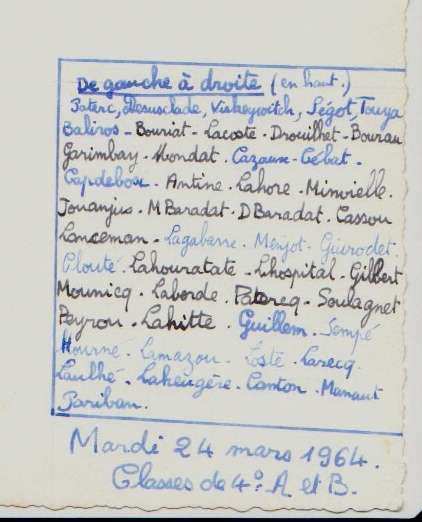 De gauche à droite (en haut.)
Paterc, Desusclade, Viskeyvitch, Ségot, Touya
Baliros - Bouriat - Lacoste - Drouilhet - Bourau
Garimbay - Mondat - Cazaux - Cébat -
Capdebosc - Antine - Lahore - Minvielle.
Jouanjus - M Baradat - D Baradat - Cassou
Lanceman - Lagabarre - Menjot - Guirodet.
Plouté - Lahouratate - Lhospital - Gilbert
Mounicq - Laborde - Patercq - Soulagnet
Peyrou - Lahitte - Guillem - Sempé
Hourné - Lamazou - Loste - Larecq -
Laulhé - Laheugère - Canton - Manaut
Pariban.
Mardi 24 mars 1964.
Classes de 4° A et B.